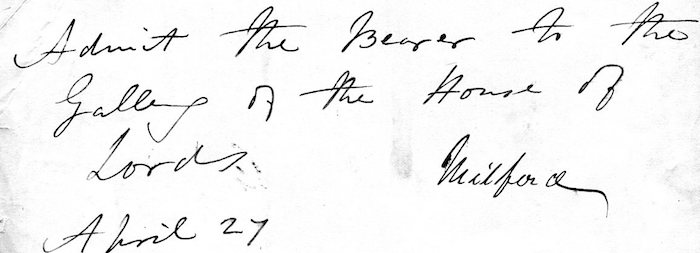 Admit the Bearer to the
Gallery of the House of
Lords
Milford
April 27